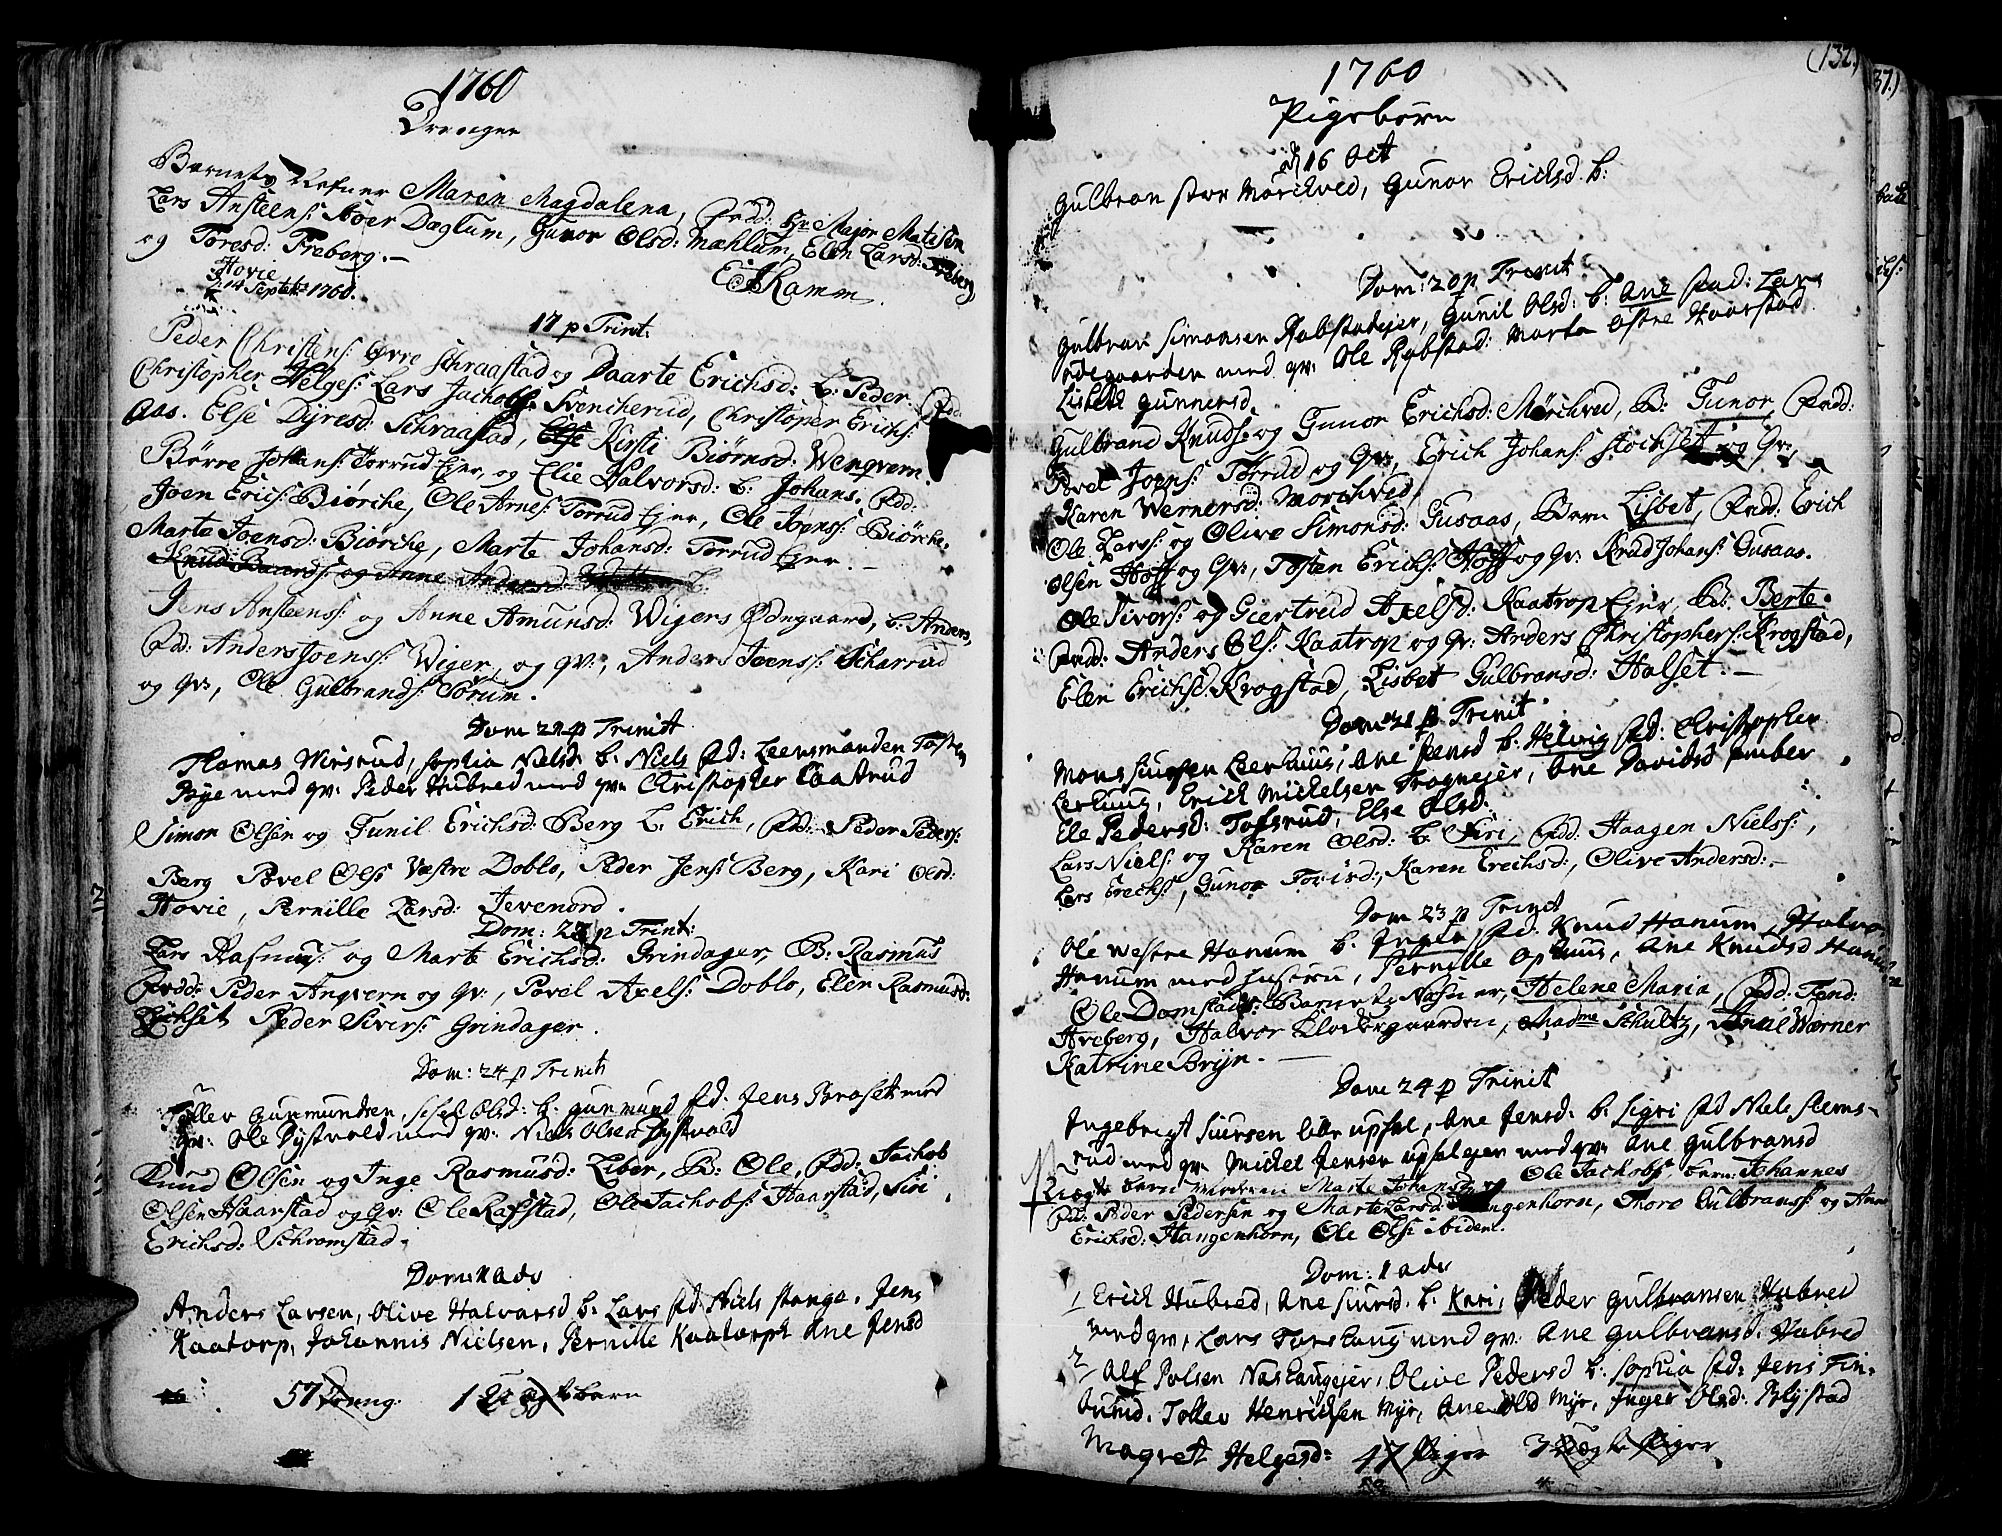 1760
Drenger
Barnets Nefn er Maren Magdalena, Fadd: Hr Major Matisen
Lars Ansteens: Støer Daglum, Gunor Olsd: Mæhlum, Elen Larsd: Freberg
og Toresd: Freberg. —
Hovie
d 14 Septebr 1760.
E Ramm
17 p Trint:
Peder Christens: Øvre Schraastad og Daarte Erichsd: b: Peder. Fdd:
Christopher Helges: Lars Jachobs: Svencherud, Christoper Erichs:
Aas. Else Dyresd: Schraastad, Else Kirsti Biørnsd: Wengvern
Børre Johans: Torrud Ejer, og Elie Halvorsd: b: Johans. Fdd:
Joen Erics: Biørche, Ole Arnes: Torrud Ejer, Ole Joens: Biørche.
Marte Joensd: Biørche, Marte Johansd: Torrud Ejer. —
Knud Baards: og Anne Andersd: b:
Jens Ansteens: og Anne Amunsd: Wigers Ødegaard, b: Anders,
Fdd: Anders Joens: Wiger, og qv:, Anders Joens: Scharrud
og qv:, Ole Gulbrands: Sørum.
Dom 21 p Trinit
Thomas Wirsrud, Sophia Nielsd: b: Niels fd: Leensmanden Tosten
Rye med qv: Peder Hubred med qv: Christopher Caatrud
Simon Olsen og Gunil Erichsd: Berg b: Erich, Fdd: Peder Peders:
Berg Povel Ols: Vestre Doblo, Peder Jens: Berg, Kari Olsd:
Hovie, Pernille Larsd: Jevenord.
Dom: 22 p Trint:
Lars Rasmus: og Marte Erichsd: Grindager, B: Rasmus
Fadd: Peder Angvern og Qv:, Povel Axels: Doblo, Elen Rasmusd:
Lychset Peder Sivers: Grindager.
Dom: 24 p Trinit
Tollev Gunmundsen, Sissel Olsd: b: Gunmund fd: Jens Braset med
qv: Ole Dystvold med qv: Niels Olsen Dystvold
Knud Olsen og Inge Rasmusd: Liber, B: Ole, Fdd: Jachob
Olsen Haarstad og Qv: Ole Rafstad, Ole Jachobs: Haarstad, Siri
Erichsd: Schromstad.
Dom: 1 adv
Anders Larsen, Olive Halvorsd b: Lars fd Niels Stange, Jens
Kaatorp, Johannis Nielsen, Pernille Kaatorp Ane Jensd
57 Dreng. 1 Uægte barn
1760
(132.)
37.)
Pigebørn
d 16 Oct
Gulbran Stor Mørchved, Gunor Ericksd. b:
Dom: 20 p Trinit
Gulbran Simonsen Rabstadejer, Gunil Olsd: b: Ane fad: Lars
ødegaarden med qv: Ole Rabstad: Marta Østre Haarstad
Lisbet Gunnersd
Gulbrand Knuds: og Gunor Erichsd: Mørchved, B: Gunor, Fadd:
Povel Joens: Torrud og Qv:, Erich Johans: Stochset og Qv:,
Karen Wernersd: Morchved,
Ole Lars: og Olive Simonsd: Gusaas, Barn Lisbet, Fadd: Erich
Olsen Hoff og Qv:, Tosten Erichs: Hoff og Qv: Knud Johans: Gusaas.
Ole Sivers: og Giertrud Axelsd: Kaatrop Ejer, B: Berte.
Fadd: Anders Ols: Kaatrop og Qv: Anders Christophers: Krogstad,
Elen Erichsd: Krogstad, Lisbet Gulbransd: Halset. —
Dom 21 p Trinit.
Mons Siursen Leerhuus, Ane Stensd b: Helvig fd: Christopher
Lerhuus, Erick Mickelsen Frognejer, Ane Davidsd Ember
Ele Pedersd: Tofsrud, Else Olsd.
Lars Niels: og Karen Olsd: b: Siri, Fdd: Haagen Niels:,
Lars Erechs:, Gunor Torisd:, Karen Erechsd:, Olive Andersd: —
Dom 23 p Trinit
Ole Westre Hanum b. Inger fd: Knud Hanum, Halvor
Hanum med hustru, Pernille Ophuus, Ane Knudsd Hanum
Ole Domstad: Barnets Nafn er, Helene Maria, Fdd: Fend:
Hveberg, Halvor Klockergaarden, Madme Schultz, Anne Wærner
Katrine Bryn. —
Dom 24 p Trinit
Ingebrigt Siursen Liber upsal, Ane Jensd: b. Sigri fd Niels Stems-
rud med qv: Mickel Jensen upsal ejer med qv: Ane Gulbransd
Uægte barn Moderen Marte og Ole Jachobs: barn: Johannes
Fdd: Peder Pedersen og Marte Larsd: Hangenhorn, Thore Gulbrans: og Anne
Erichsd: Hangenhorn, Ole Ols: ibiden.
Dom: 1 adv
1/ Erick Hubred, Ane Siursd. b. Kari, Peder Gulbransen Hubred
med qv, Lars Torshaug med qv: Ane Gulbransd. Hubred
2/ Alf Polsen Nashaugejer, Olive Pedersd b: Sophia fd: Jens Fin-
bund. Tollev Henricksen Myr, Ane Olsd Myr, Inger Olsd: Blystad
Magret Helgesd: 47 Piger 3 Uægte Piger